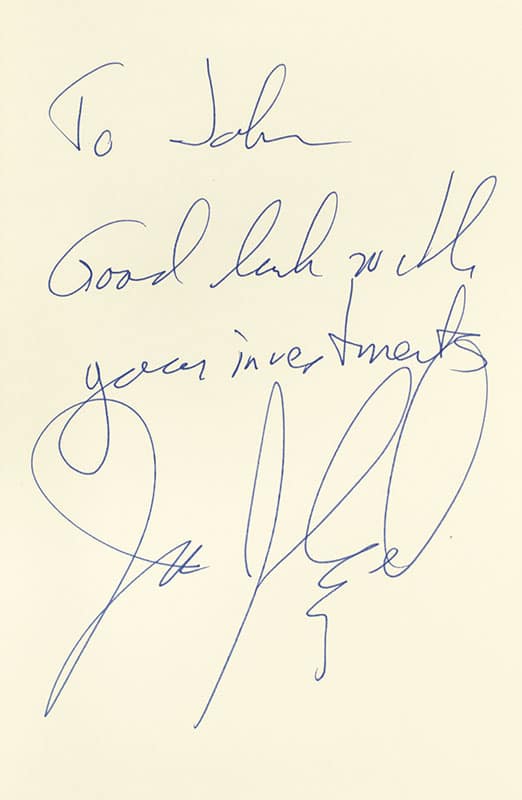 To John
Good luck with
your investments